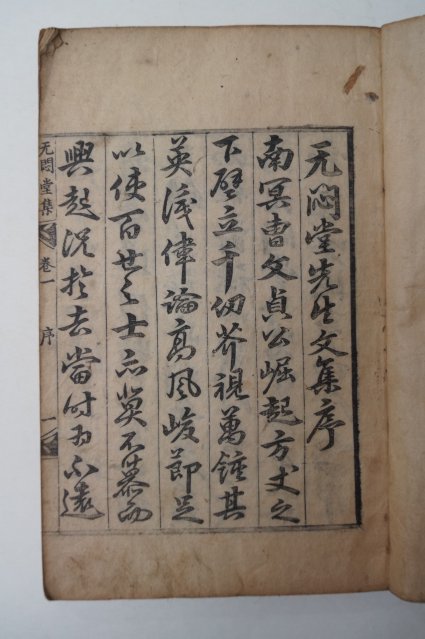 无悶堂先生文集序
南冥曺文貞公崛起方丈之
下壁立千仞芥視萬鍾其
英識偉論高風峻節足
以使百世之士亦莫不慕而
興起況於去當时为不遠
无悶堂集 卷一 序 一